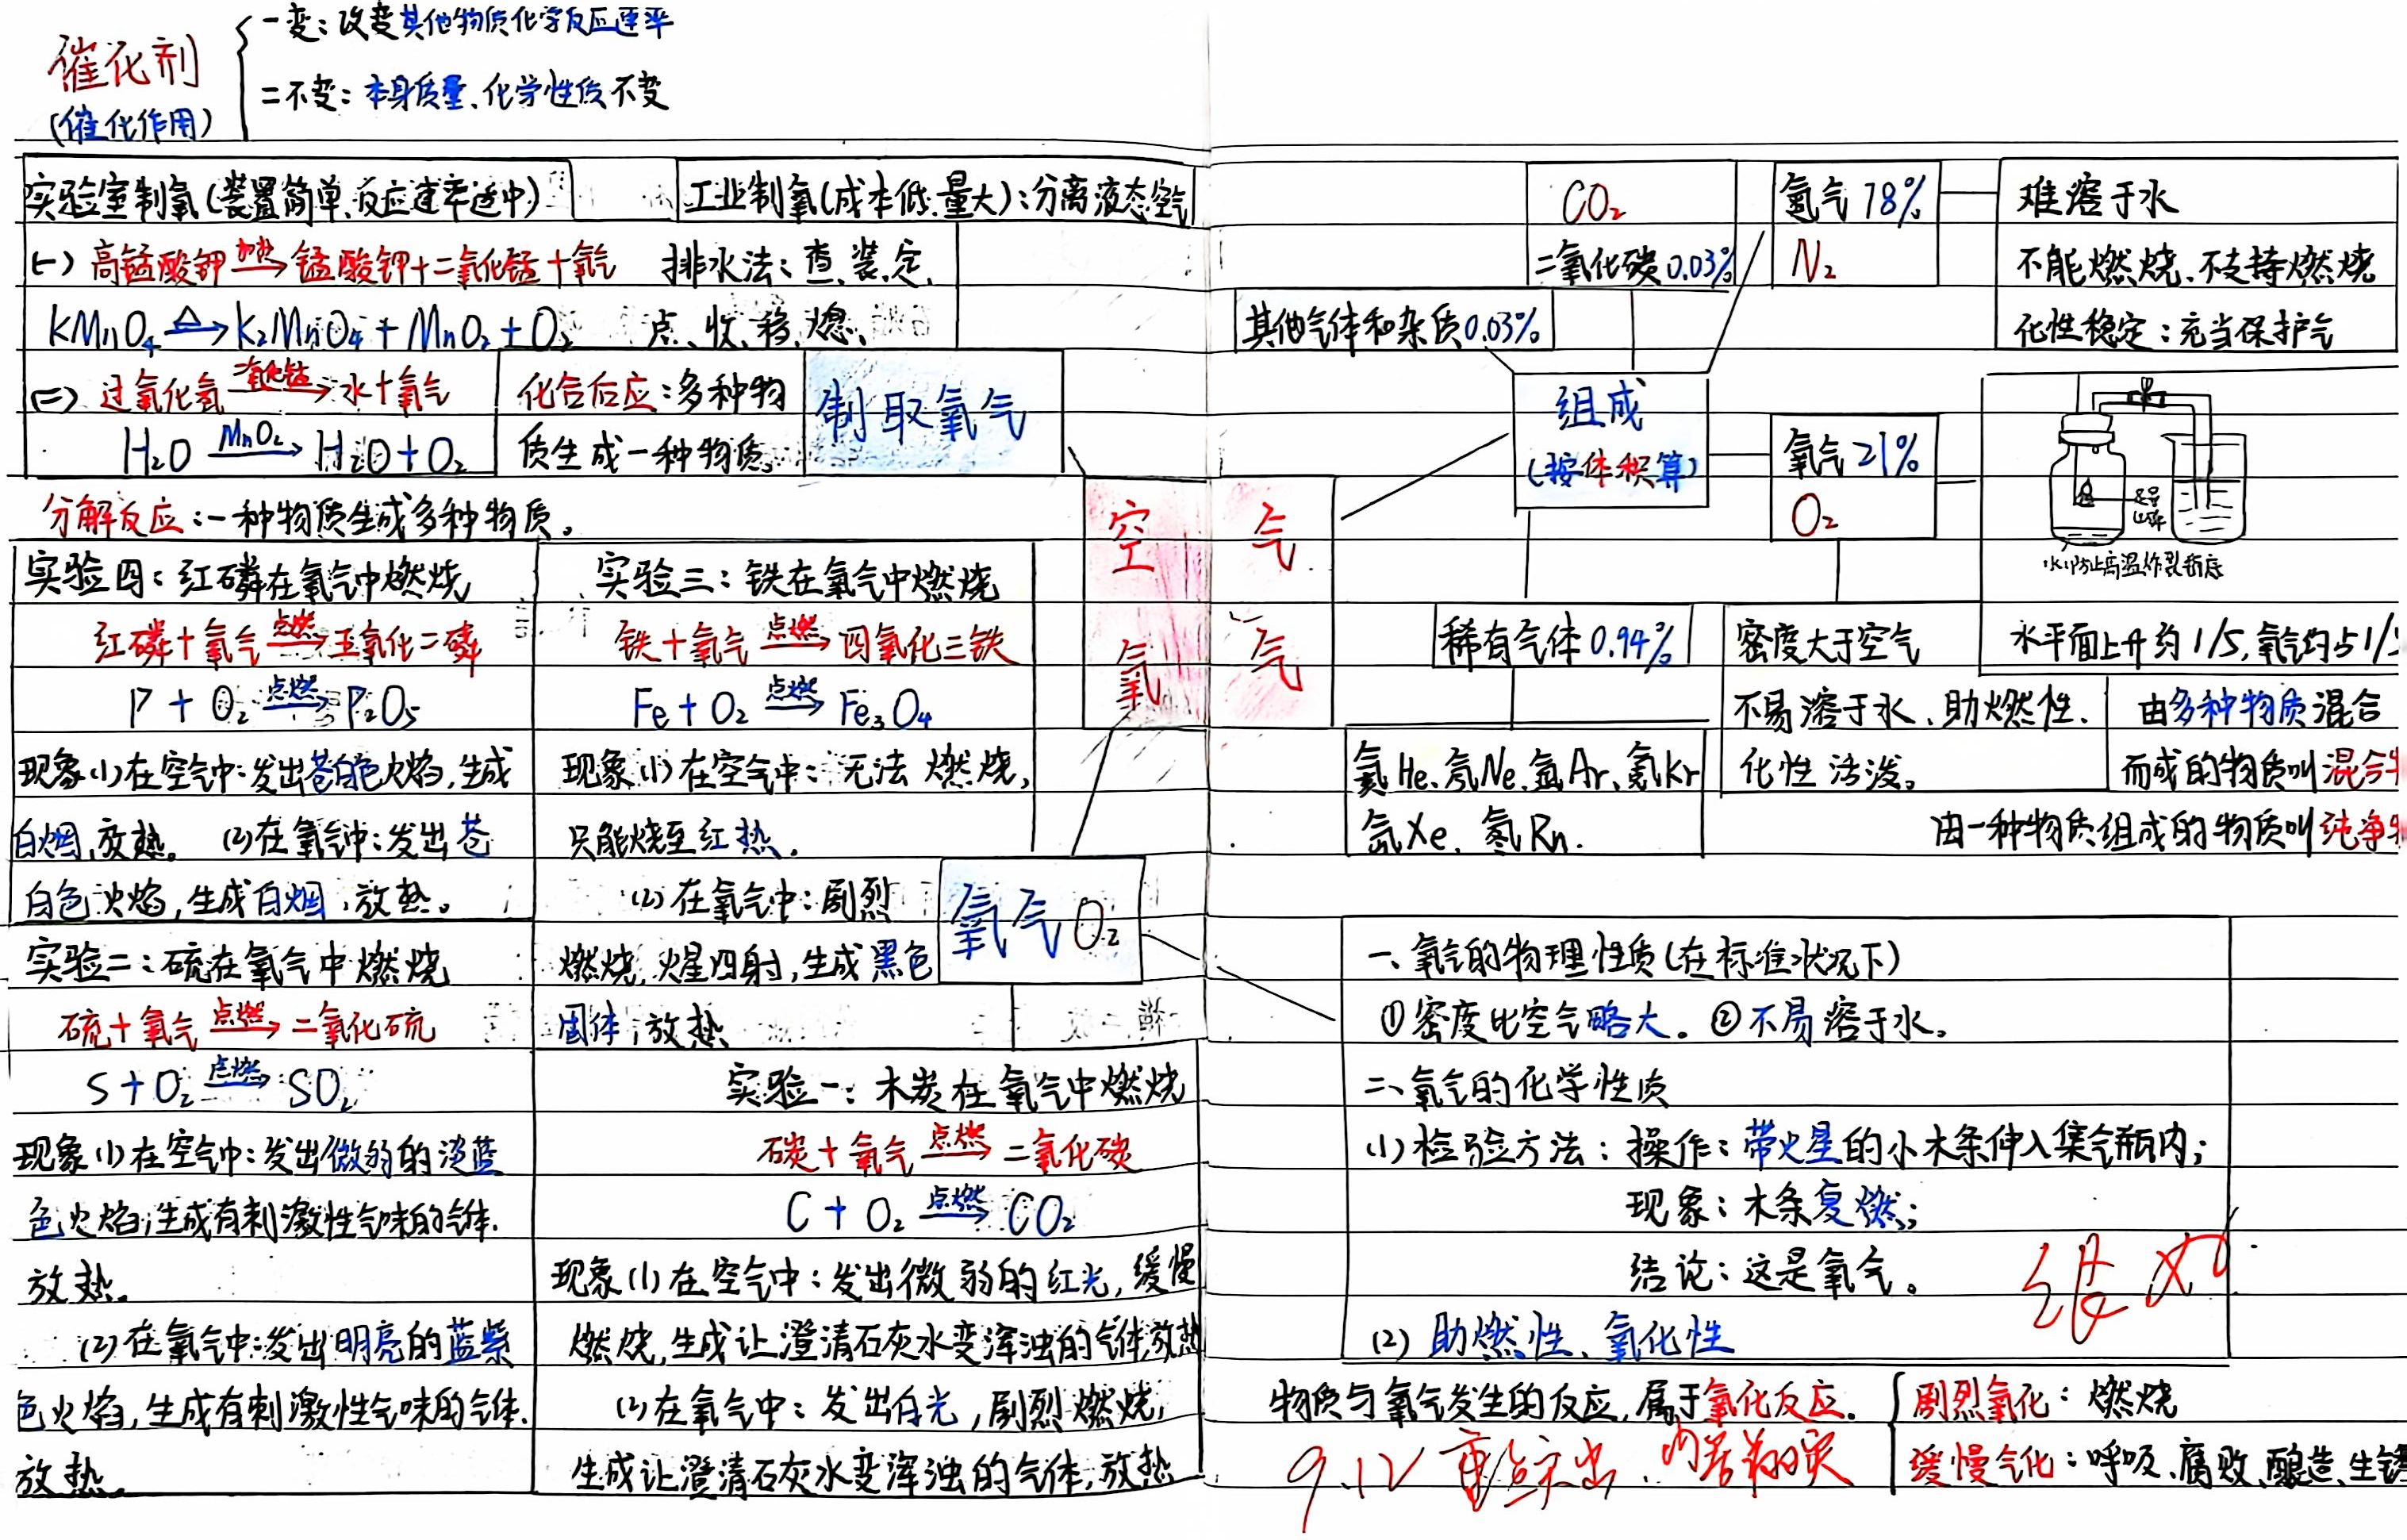 催化剂
(催化作用)
一变：改变其他物质化学反应速率
二不变：本身质量、化学性质不变
实验室制氧(装置简单、反应速率适中)
工业制氧(成本低、量大)：分离液态空气
(一) 高锰酸钾 加热→ 锰酸钾+二氧化锰+氧气
KMnO₄ △→ K₂MnO₄ + MnO₂ + O₂
排水法：查、装、定、
点、收、移、熄、
(二) 过氧化氢 二氧化锰→ 水+氧气
H₂O MnO₂→ H₂O+O₂
化合反应：多种物
质生成一种物质。
制取氧气
分解反应：一种物质生成多种物质。
实验四：红磷在氧气中燃烧
红磷+氧气 点燃→ 五氧化二磷
P + O₂ 点燃→ P₂O₅
现象(1)在空气中：发出苍白色火焰，生成
白烟，放热。 (2)在氧气中：发出苍
白色火焰，生成白烟，放热。
实验二：硫在氧气中燃烧
硫+氧气 点燃→ 二氧化硫
S+O₂ 点燃→ SO₂
现象(1)在空气中：发出微弱的淡蓝
色火焰，生成有刺激性气味的气体.
放热.
(2)在氧气中：发出明亮的蓝紫
色火焰，生成有刺激性气味的气体.
放热.
实验三：铁在氧气中燃烧
铁+氧气 点燃→ 四氧化三铁
Fe+O₂ 点燃→ Fe₃O₄
现象(1)在空气中：无法燃烧，
只能烧至红热.
(2)在氧气中：剧烈
燃烧，火星四射，生成黑色
固体，放热
氧气O₂
实验一：木炭在氧气中燃烧
碳+氧气 点燃→ 二氧化碳
C + O₂ 点燃→ CO₂
现象(1)在空气中：发出微弱的红光，缓慢
燃烧，生成让澄清石灰水变浑浊的气体，放热
(2)在氧气中：发出白光，剧烈燃烧，
生成让澄清石灰水变浑浊的气体，放热
空气
氧气
CO₂
二氧化碳0.03%
氮气78%
N₂
难溶于水
不能燃烧、不支持燃烧
化性稳定：充当保护气
其他气体和杂质0.03%
组成
(按体积算)
氧气21%
O₂
水：防止高温炸裂瓶底
水平面上升约1/5，氧气约占1/
稀有气体0.94%
氦He、氖Ne、氩Ar、氪Kr
氙Xe、氡Rn.
密度大于空气
不易溶于水、助燃性.
化性活泼。
由多种物质混合
而成的物质叫混合
由一种物质组成的物质叫纯净
一、氧气的物理性质(在标准状况下)
①密度比空气略大。②不易溶于水。
二、氧气的化学性质
(1)检验方法：操作：带火星的小木条伸入集气瓶内；
现象：木条复燃；
结论：这是氧气。
(2) 助燃性、氧化性
物质与氧气发生的反应，属于氧化反应.
剧烈氧化：燃烧
缓慢气化：呼吸、腐败、酿造、生锈
9.12 重点突出，内容翔实